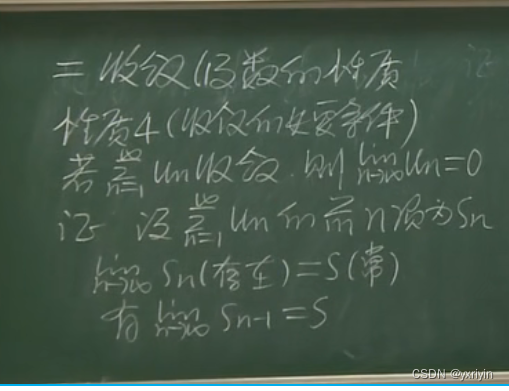 二 收敛级数的性质 证
性质4(收敛的必要条件)
若 ∞∑n=1 Un收敛.则 lim n→∞ Un=0
证 设 ∞∑n=1 Un的前n项为Sn
lim n→∞ Sn(存在)=S(常)
有 lim n→∞ Sn-1=S
CSDN @yxriyin